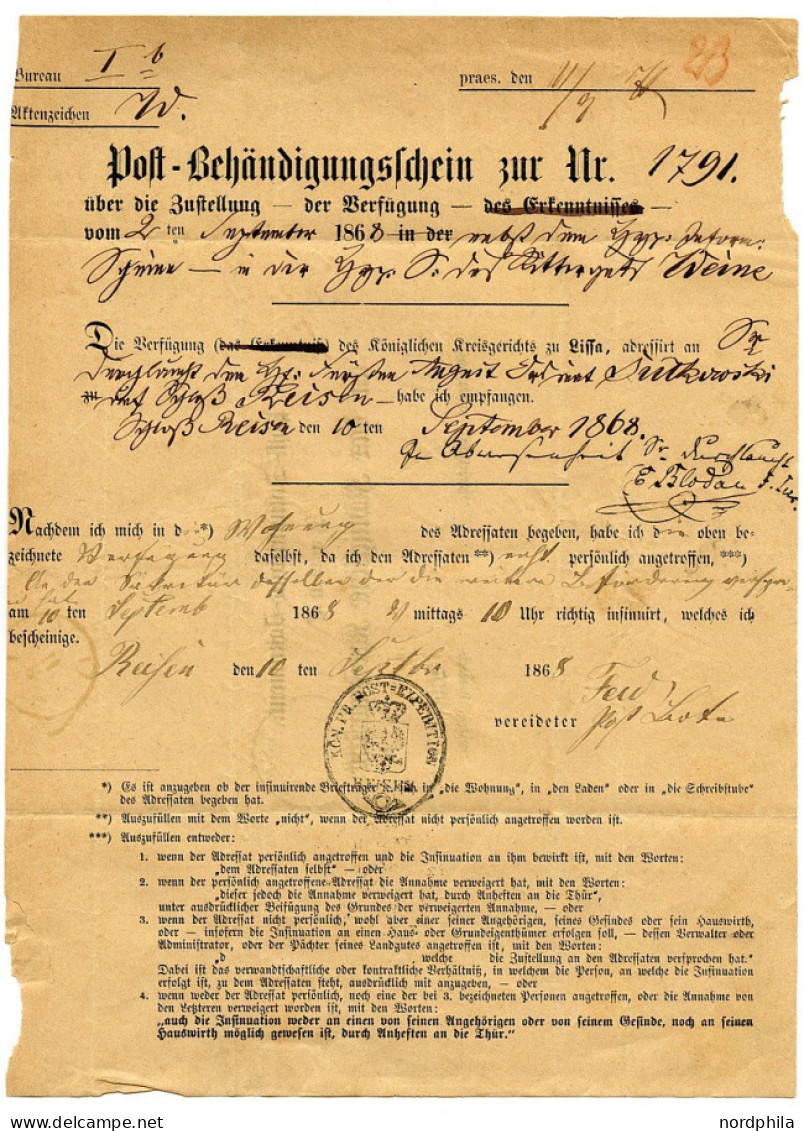 Bureau I b praes. den 11/9 23
Aktenzeichen
Post-Behändigungsschein zur Nr. 1791.
über die Zustellung — der Verfügung — des Erkenntnisses —
vom 2 ten September 1868 in der nebst dem Hyp:
Scheine — in der Hyp: S. des Ritterguts Weine
Die Verfügung (das Erkenntniß) des Königlichen Kreisgerichts zu Lissa, adressirt an Sr
Durchlaucht den Fürsten August Sulkowski
zu auf Schloß Reisen — habe ich empfangen.
Schloß Reisen den 10 ten September 1868.
In Abwesenheit Sr. Durchlaucht
Nachdem ich mich in die *) Wohnung des Adressaten begeben, habe ich die oben be-
zeichnete Verfügung daselbst, da ich den Adressaten **) nicht persönlich angetroffen, ***)
An den Sekretair desselben der die weitere Beförderung
am 10 ten Septemb 1868 mittags 10 Uhr richtig insinuirt, welches ich
hat
bescheinige.
Reisen den 10 ten Septbr 1868
vereideter Post Bote
KÖN. PR. POST-EXPEDITION
REISEN
*) Es ist anzugeben ob der insinuirende Briefträger ꝛc. sich in „die Wohnung", in „den Laden" oder in „die Schreibstube"
des Adressaten begeben hat.
**) Auszufüllen mit dem Worte „nicht", wenn der Adressat nicht persönlich angetroffen worden ist.
***) Auszufüllen entweder:
1. wenn der Adressat persönlich angetroffen und die Insinuation an ihm bewirkt ist, mit den Worten:
„dem Adressaten selbst" — oder
2. wenn der persönlich angetroffene Adressat die Annahme verweigert hat, mit den Worten:
„dieser jedoch die Annahme verweigert hat, durch Anheften an die Thür",
unter ausdrücklicher Beifügung des Grundes der verweigerten Annahme, — oder
3. wenn der Adressat nicht persönlich, wohl aber einer seiner Angehörigen, seines Gesindes oder sein Hauswirth,
oder — insofern die Insinuation an einen Haus- oder Grundeigenthümer erfolgen soll, — dessen Verwalter oder
Administrator, oder der Pächter seines Landgutes angetroffen ist, mit den Worten:
„d welche die Zustellung an den Adressaten versprochen hat."
Dabei ist das verwandtschaftliche oder kontraktliche Verhältniß, in welchem die Person, an welche die Insinuation
erfolgt ist, zu dem Adressaten steht, ausdrücklich mit anzugeben, — oder
4. wenn weder der Adressat persönlich, noch eine der bei 3. bezeichneten Personen angetroffen, oder die Annahme von
den Letzteren verweigert worden ist, mit den Worten:
„auch die Insinuation weder an einen von seinen Angehörigen oder von seinem Gesinde, noch an seinen
Hauswirth möglich gewesen ist, durch Anheften an die Thür."
nordphila